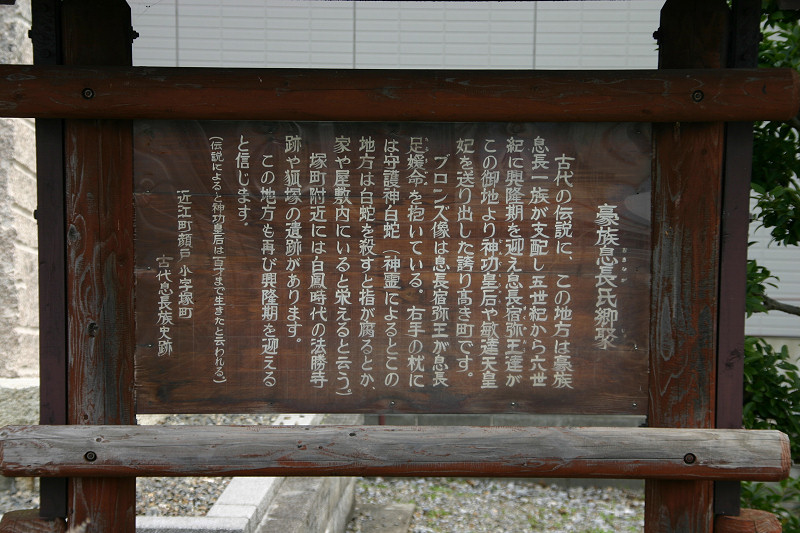 豪族息長氏御陵
おきなが
古代の伝説に、この地方は豪族
息長一族が支配し五世紀から六世
紀に興隆期を迎え息長宿弥王達が
この御地より神功皇后や敏達天皇
妃を送り出した誇り高き町です。
ブロンズ像は息長宿弥王が息長
足媛命を抱いている。右手の枕に
は守護神白蛇(神霊によるとこの
地方は白蛇を殺すと指が腐るとか、
家や屋敷内にいると栄えると云う)
塚町附近には白鳳時代の法勝寺
跡や狐塚の遺跡があります。
この地方も再び興隆期を迎える
と信じます。
(伝説によると神功皇后は百才まで生きたと云われる。)
近江町顔戸小字塚町
古代息長族史跡